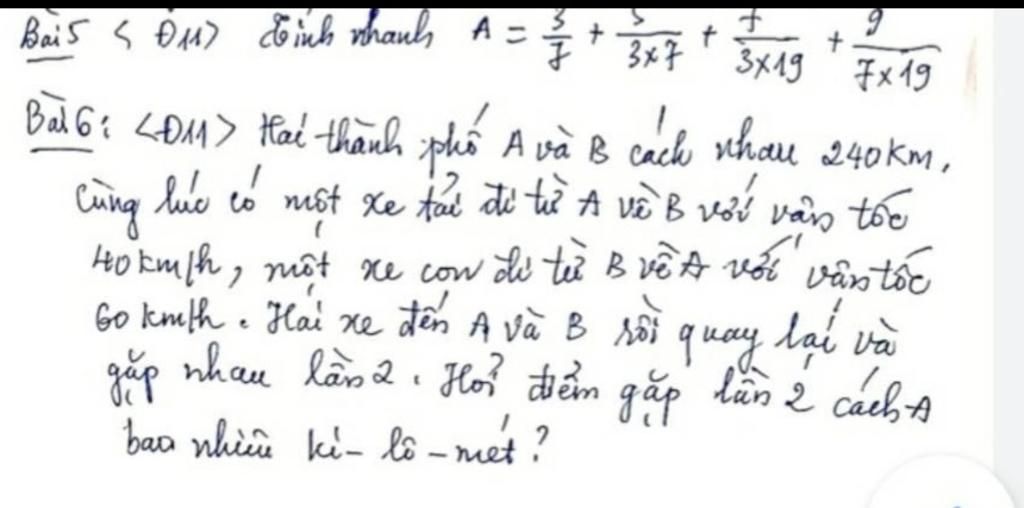 Bài 5 < Đ11> Tính nhanh A = 3/7 + 5/(3x7) + 7/(3x19) + 9/(7x19)
Bài 6: <Đ11> Hai thành phố A và B cách nhau 240km,
Cùng lúc có một xe tải đi từ A về B với vận tốc
40km/h, một xe con đi từ B về A với vận tốc
60km/h. Hai xe đến A và B rồi quay lại và
gặp nhau lần 2. Hỏi điểm gặp lần 2 cách A
bao nhiêu ki-lô-mét?